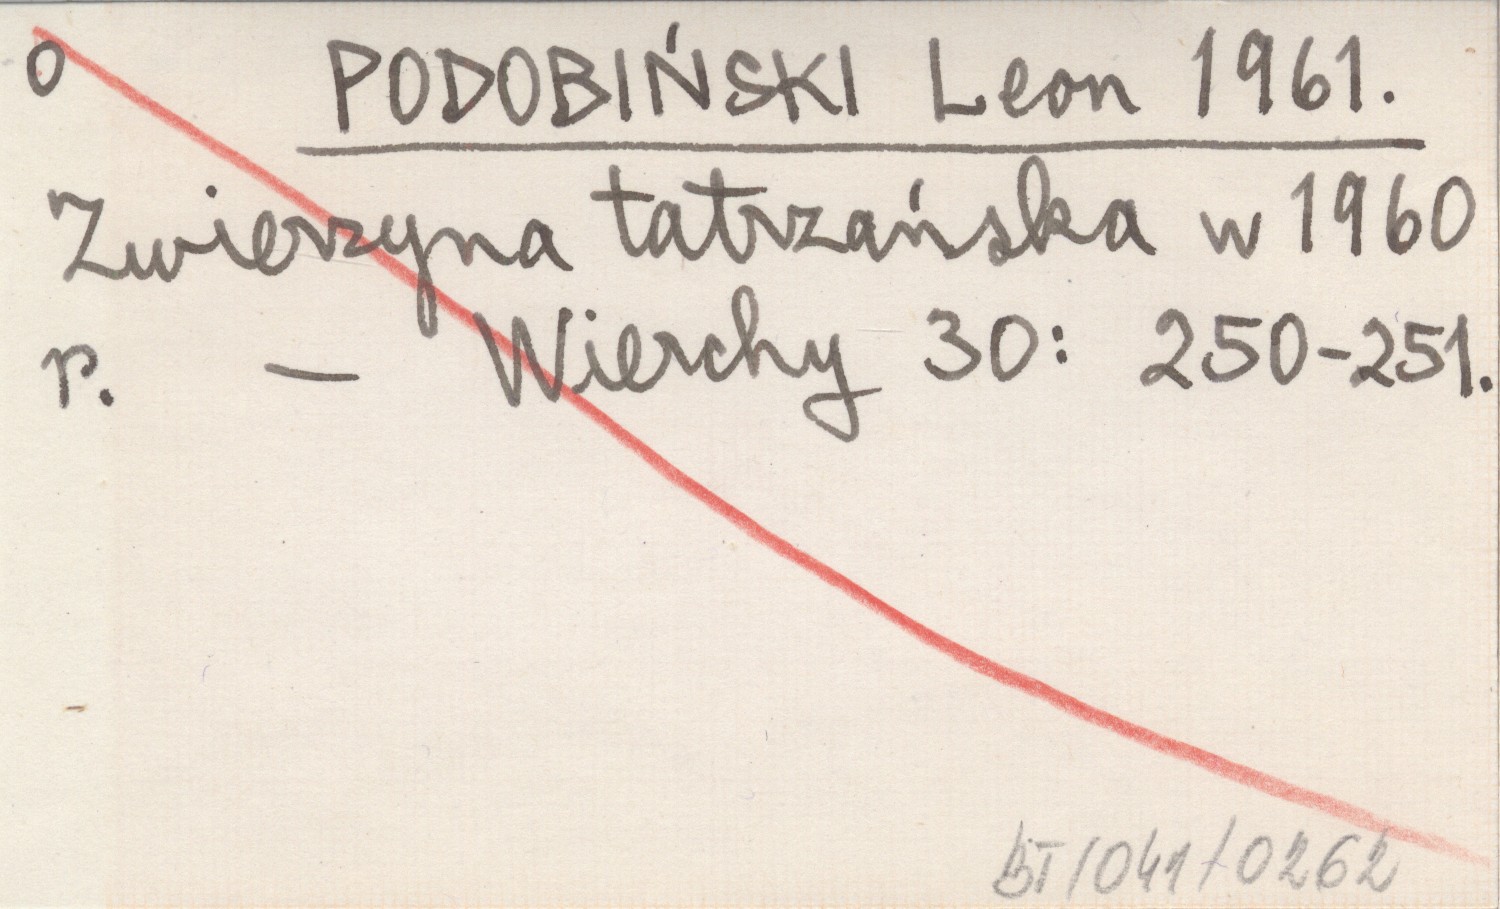 o PODOBIŃSKI Leon 1961.
Zwierzyna tatrzańska w 1960
r. — Wierchy 30: 250-251.
BT/041/0262